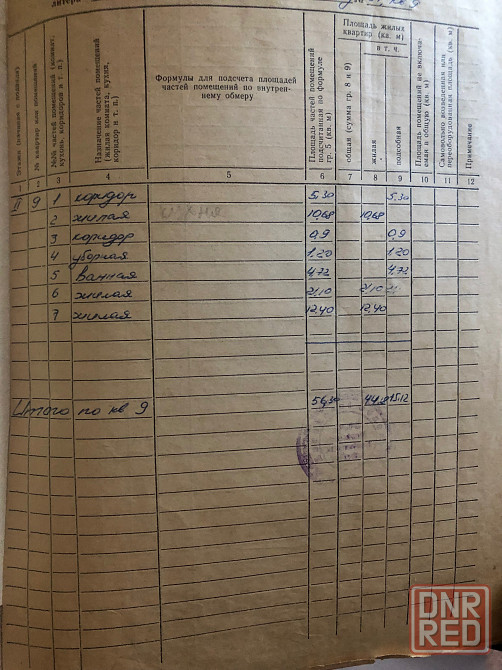 литера
кв 9
Этажи (начиная с подвала)
№ квартир или помещений
№№ частей помещений (комнат, кухонь, коридоров и т. п.)
Назначение частей помещений (жилая комната, кухня, коридор и т. п.)
Формулы для подсчета площадей
частей помещений по внутрен-
нему обмеру
Площадь частей помещений подсчитанная по формуле гр. 5 (кв. м)
Площадь жилых
квартир (кв. м)
общая (сумма гр. 8 и 9)
в т. ч.
жилая
подсобная
Площадь помещений не включаемая в общую (кв. м)
Самовольно возведенная или переоборудованная площадь (кв. м)
Примечание
1 2 3 4 5 6 7 8 9 10 11 12
II 9 1 коридор 5,30 5,30
2 жилая кухня 10,68 10,68
3 коридор 0,9 0,9
4 уборная 1,20 1,20
5 ванная 4,72 4,72
6 жилая 21,10 21,10
7 жилая 12,40 12,40
Итого по кв 9 56,30 15,12
DNR
RED